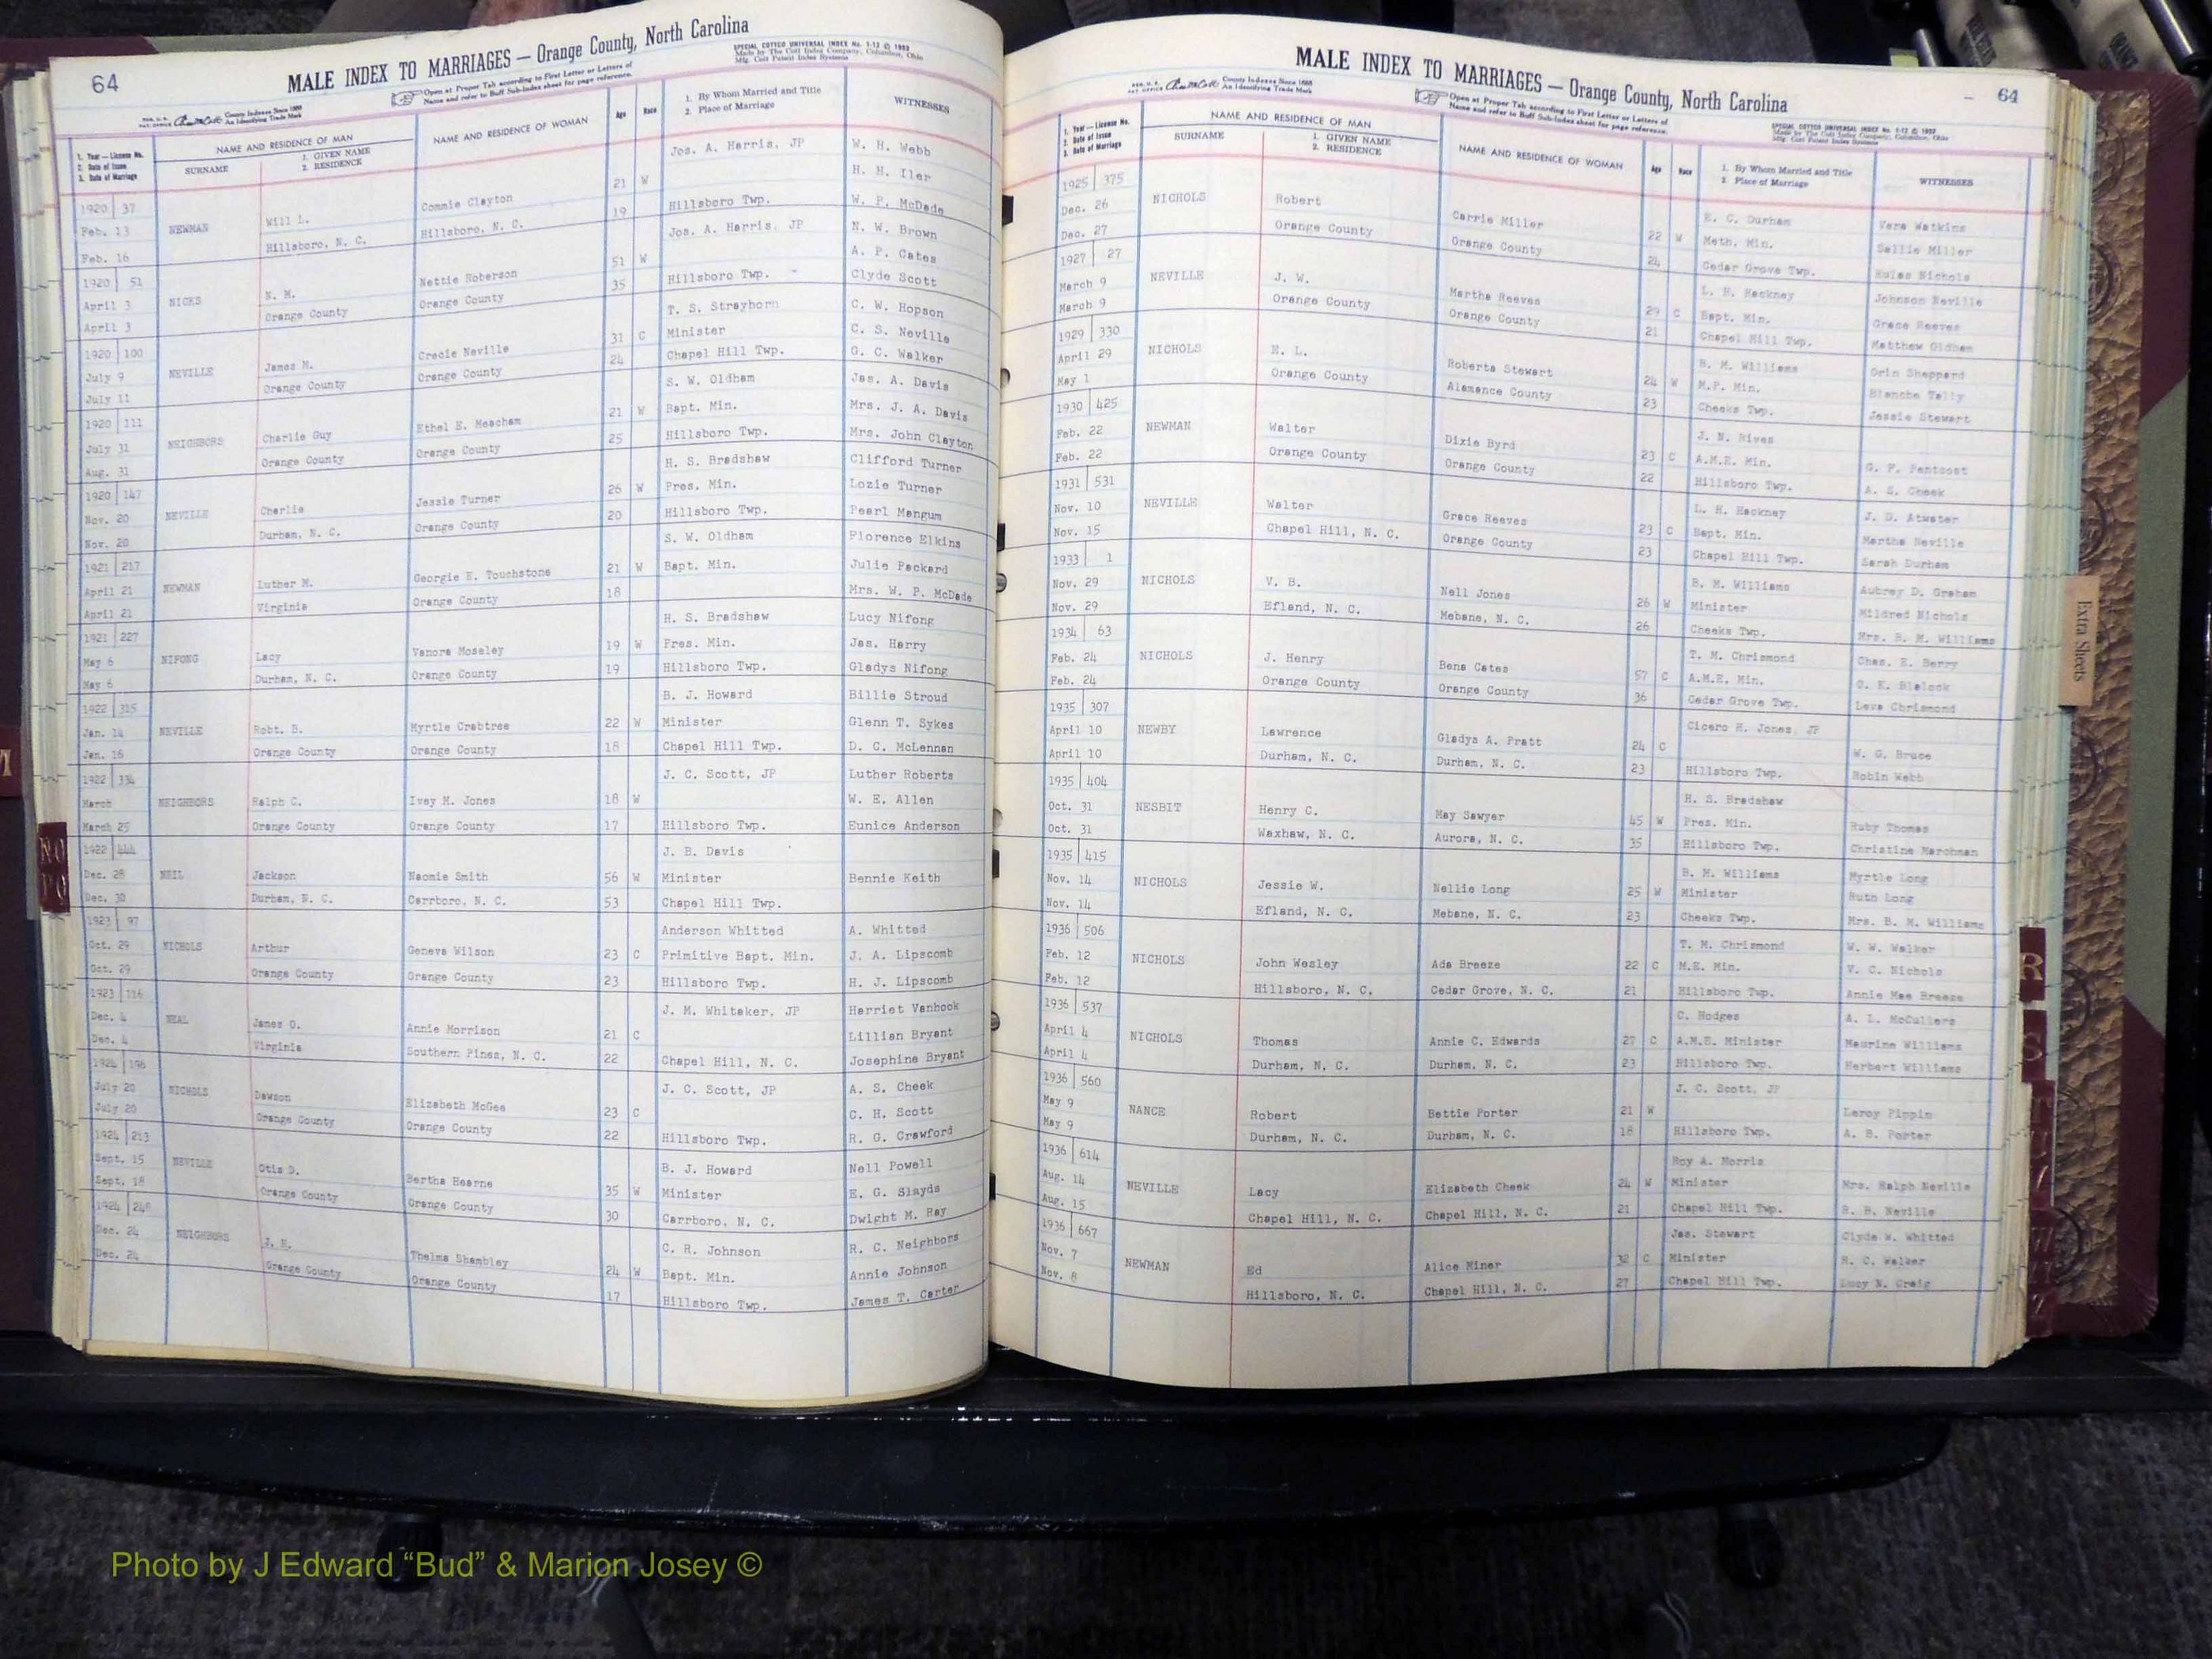 64
MALE INDEX TO MARRIAGES — Orange County, North Carolina
SPECIAL COTTCO UNIVERSAL INDEX No. 1-12 © 1953
Made by The Cott Index Company, Columbus, Ohio
Mfg. Cott Patent Index Systems
Open at Proper Tab according to First Letter or Letters of
Name and refer to Buff Sub-Index sheet for page reference.
County Indexes Since 1888
An Identifying Trade Mark
1. Year — License No.
2. Date of Issue
3. Date of Marriage
NAME AND RESIDENCE OF MAN
SURNAME
1. GIVEN NAME
2. RESIDENCE
NAME AND RESIDENCE OF WOMAN
Age
Race
1. By Whom Married and Title
2. Place of Marriage
WITNESSES
1920 37 Jos. A. Harris, JP W. H. Webb
Feb. 13 NEWMAN Will L. Commie Clayton 21 W H. H. Iler
Feb. 16 Hillsboro, N. C. Hillsboro, N. C. 19 Hillsboro Twp. W. P. McDade
1920 51 Jos. A. Harris, JP N. W. Brown
April 3 NICKS N. M. Nettie Roberson 51 W A. P. Cates
April 3 Orange County Orange County 35 Hillsboro Twp. Clyde Scott
1920 100 T. S. Strayhorn C. W. Hopson
July 9 NEVILLE James M. Cracie Neville 31 C Minister C. S. Neville
July 11 Orange County Orange County 24 Chapel Hill Twp. G. C. Walker
1920 111 S. W. Oldham Jas. A. Davis
July 31 NEIGHBORS Charlie Guy Ethel E. Meacham 21 W Bapt. Min. Mrs. J. A. Davis
Aug. 31 Orange County Orange County 25 Hillsboro Twp. Mrs. John Clayton
1920 147 H. S. Bradshaw Clifford Turner
Nov. 20 NEVILLE Charlie Jessie Turner 26 W Pres. Min. Lozie Turner
Nov. 20 Durham, N. C. Orange County 20 Hillsboro Twp. Pearl Mangum
1921 217 S. W. Oldham Florence Elkins
April 21 NEWMAN Luther M. Georgie E. Touchstone 21 W Bapt. Min. Julie Packard
April 21 Virginia Orange County 18 Mrs. W. P. McDade
1921 227 H. S. Bradshaw Lucy Nifong
May 6 NIFONG Lacy Vanora Moseley 19 W Pres. Min. Jas. Harry
May 6 Durham, N. C. Orange County 19 Hillsboro Twp. Gladys Nifong
1922 315 B. J. Howard Billie Stroud
Jan. 14 NEVILLE Robt. B. Myrtle Crabtree 22 W Minister Glenn T. Sykes
Jan. 16 Orange County Orange County 18 Chapel Hill Twp. D. C. McLennan
1922 334 J. C. Scott, JP Luther Roberts
March NEIGHBORS Ralph C. Ivey M. Jones 18 W W. E. Allen
March 25 Orange County Orange County 17 Hillsboro Twp. Eunice Anderson
1922 444 J. B. Davis
Dec. 28 NEIL Jackson Naomie Smith 56 W Minister Bennie Keith
Dec. 30 Durham, N. C. Carrboro, N. C. 53 Chapel Hill Twp.
1923 97 Anderson Whitted A. Whitted
Oct. 29 NICHOLS Arthur Geneva Wilson 23 C Primitive Bapt. Min. J. A. Lipscomb
Oct. 29 Orange County Orange County 23 Hillsboro Twp. H. J. Lipscomb
1923 116 J. M. Whitaker, JP Harriet Vanhook
Dec. 4 NEAL James O. Annie Morrison 21 C Lillian Bryant
Dec. 4 Virginia Southern Pines, N. C. 22 Chapel Hill, N. C. Josephine Bryant
1924 196 J. C. Scott, JP A. S. Cheek
July 20 NICHOLS Dawson Elizabeth McGee 23 C C. H. Scott
July 20 Orange County Orange County 22 Hillsboro Twp. R. G. Crawford
1924 213 B. J. Howard Nell Powell
Sept. 15 NEVILLE Otis D. Bertha Hearne 35 W Minister E. G. Slayds
Sept. 18 Orange County Orange County 30 Carrboro, N. C. Dwight M. Ray
1924 248 C. R. Johnson R. C. Neighbors
Dec. 24 NEIGHBORS J. H. Thelma Shambley 24 W Bapt. Min. Annie Johnson
Dec. 24 Orange County Orange County 17 Hillsboro Twp. James T. Carter
64
MALE INDEX TO MARRIAGES — Orange County, North Carolina
County Indexes Since 1888
An Identifying Trade Mark
Open at Proper Tab according to First Letter or Letters of
Name and refer to Buff Sub-Index sheet for page reference.
SPECIAL COTTCO UNIVERSAL INDEX No. 1-12 © 1953
Made by The Cott Index Company, Columbus, Ohio
Mfg. Cott Patent Index Systems
1. Year — License No.
2. Date of Issue
3. Date of Marriage
NAME AND RESIDENCE OF MAN
SURNAME
1. GIVEN NAME
2. RESIDENCE
NAME AND RESIDENCE OF WOMAN
Age
Race
1. By Whom Married and Title
2. Place of Marriage
WITNESSES
1925 375 E. C. Durham Vera Watkins
Dec. 26 NICHOLS Robert Carrie Miller 22 W Meth. Min. Sallie Miller
Dec. 27 Orange County Orange County 24 Cedar Grove Twp. Eulas Nichols
1927 27 L. H. Hackney Johnson Neville
March 9 NEVILLE J. W. Martha Reeves 29 C Bapt. Min. Grace Reeves
March 9 Orange County Orange County 21 Chapel Hill Twp. Matthew Oldham
1929 330 B. M. Williams Orin Sheppard
April 29 NICHOLS E. L. Roberta Stewart 24 W M.P. Min. Blanche Tally
May 1 Orange County Alamance County 23 Cheeks Twp. Jessie Stewart
1930 425 J. N. Rives
Feb. 22 NEWMAN Walter Dixie Byrd 23 C A.M.E. Min. G. P. Pentcost
Feb. 22 Orange County Orange County 22 Hillsboro Twp. A. S. Cheek
1931 531 L. H. Hackney J. D. Atwater
Nov. 10 NEVILLE Walter Grace Reeves 23 C Bapt. Min. Martha Neville
Nov. 15 Chapel Hill, N. C. Orange County 23 Chapel Hill Twp. Sarah Durham
1933 1 B. M. Williams Aubrey D. Graham
Nov. 29 NICHOLS V. B. Nell Jones 26 W Minister Mildred Nichols
Nov. 29 Efland, N. C. Mebane, N. C. 26 Cheeks Twp. Mrs. B. M. Williams
1934 63 T. M. Chrismond Chas. E. Berry
Feb. 24 NICHOLS J. Henry Bena Cates 57 C A.M.E. Min. O. K. Blalock
Feb. 24 Orange County Orange County 36 Cedar Grove Twp. Leva Chrismond
1935 307 Cicero H. Jones, JP
April 10 NEWBY Lawrence Gladys A. Pratt 24 C W. G. Bruce
April 10 Durham, N. C. Durham, N. C. 23 Hillsboro Twp. Robin Webb
1935 404 H. S. Bradshaw
Oct. 31 NESBIT Henry C. May Sawyer 45 W Pres. Min. Ruby Thomas
Oct. 31 Waxhaw, N. C. Aurora, N. C. 35 Hillsboro Twp. Christine Marchman
1935 415 B. M. Williams Myrtle Long
Nov. 14 NICHOLS Jessie W. Nellie Long 25 W Minister Ruth Long
Nov. 14 Efland, N. C. Mebane, N. C. 23 Cheeks Twp. Mrs. B. M. Williams
1936 506 T. M. Chrismond W. W. Walker
Feb. 12 NICHOLS John Wesley Ada Breeze 22 C M.E. Min. V. C. Nichols
Feb. 12 Hillsboro, N. C. Cedar Grove, N. C. 21 Hillsboro Twp. Annie Mae Breeze
1936 537 C. Hodges A. L. McCullers
April 4 NICHOLS Thomas Annie C. Edwards 27 C A.M.E. Minister Maurine Williams
April 4 Durham, N. C. Durham, N. C. 23 Hillsboro Twp. Herbert Williams
1936 560 J. C. Scott, JP
May 9 NANCE Robert Bettie Porter 21 W Leroy Pippin
May 9 Durham, N. C. Durham, N. C. 18 Hillsboro Twp. A. B. Porter
1936 614 Roy A. Morris
Aug. 14 NEVILLE Lacy Elizabeth Cheek 24 W Minister Mrs. Ralph Neville
Aug. 15 Chapel Hill, N. C. Chapel Hill, N. C. 21 Chapel Hill Twp. R. B. Neville
1936 667 Jas. Stewart Clyde W. Whitted
Nov. 7 NEWMAN Ed Alice Miner 32 C Minister H. C. Walker
Nov. 8 Hillsboro, N. C. Chapel Hill, N. C. 27 Chapel Hill Twp. Lucy N. Craig
Extra Sheets
R
S
Photo by J Edward “Bud” & Marion Josey ©